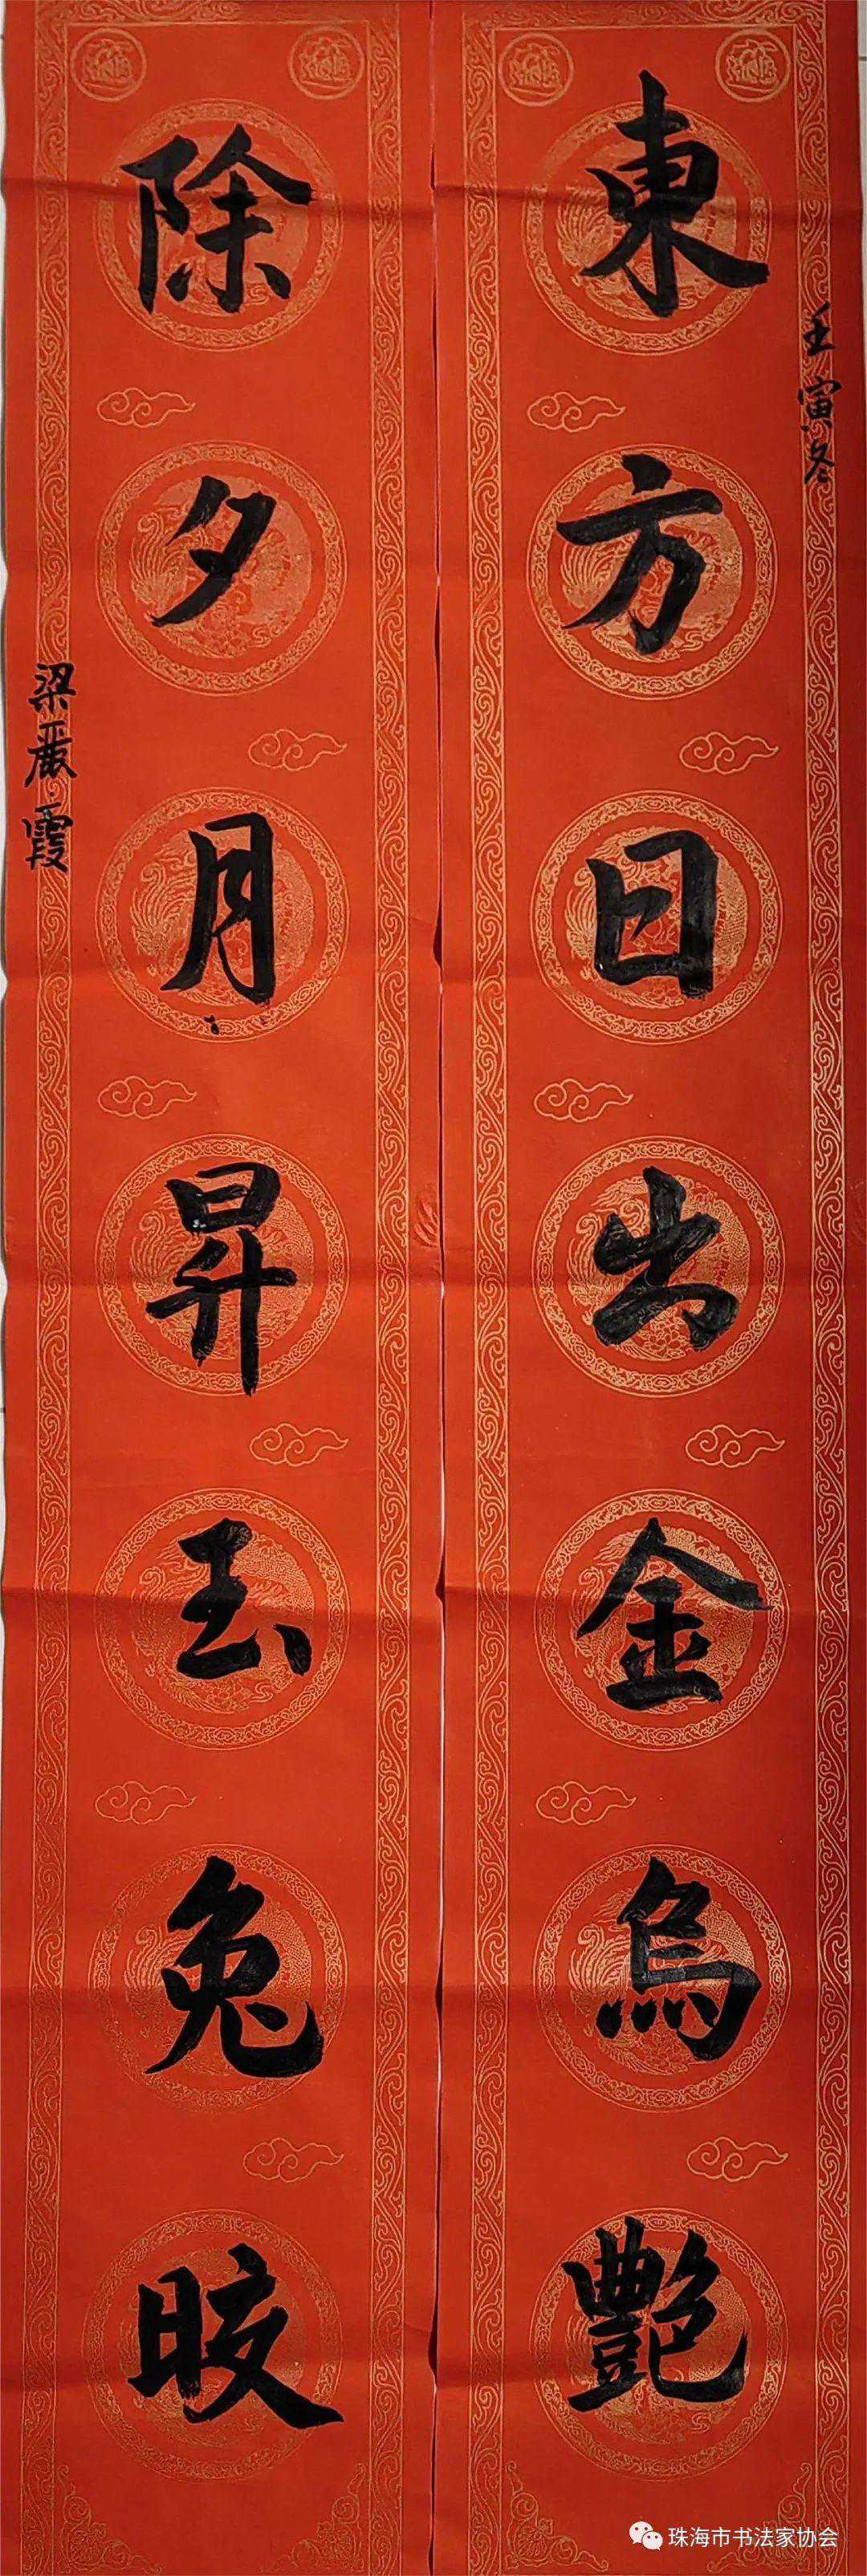 東方日出金烏艷
壬寅冬
除夕月昇玉兔晈
梁嚴霞
珠海市书法家协会